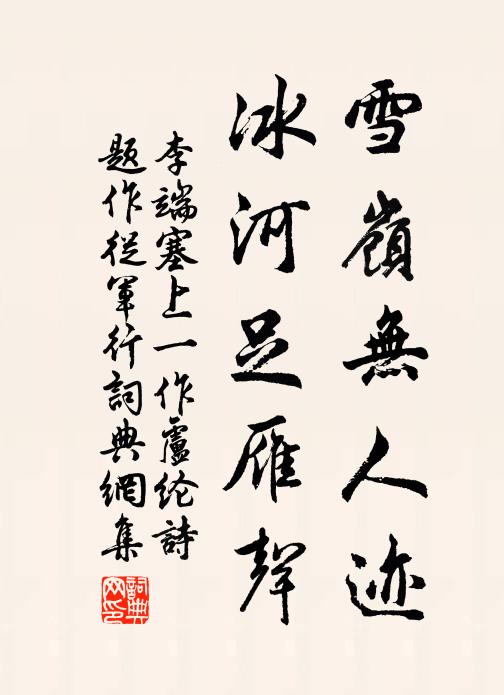 雪嶺無人迹
冰河足雁聲
李端塞上一作盧纶詩
題作從軍行詞典網集
詞典
网印